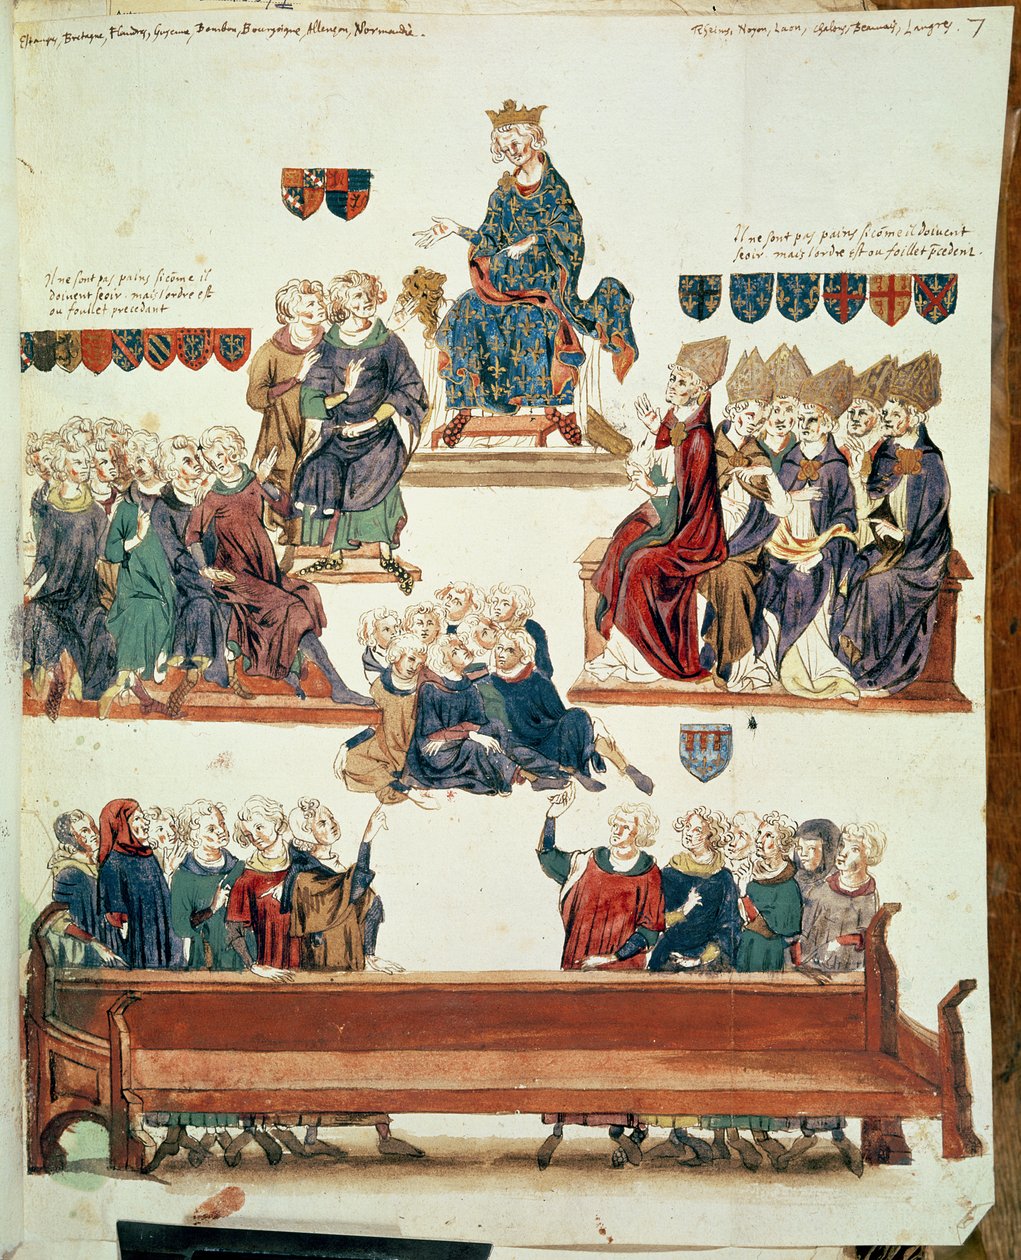 Estampes, Bretagne, Flandres, Guyenne, Bourbon, Bourgoigne, Allenson, Normandie.
Rheins, Noyon, Laon, Chalons, Beauvais, Langres. 7
Il ne sont pas pairs si cōme il doivent
seoir. mais l'ordre est ou foillet p̄cedent.
Il ne sont pas pairs si cōme il
doivent seoir. mais l'ordre est
ou foillet precedant